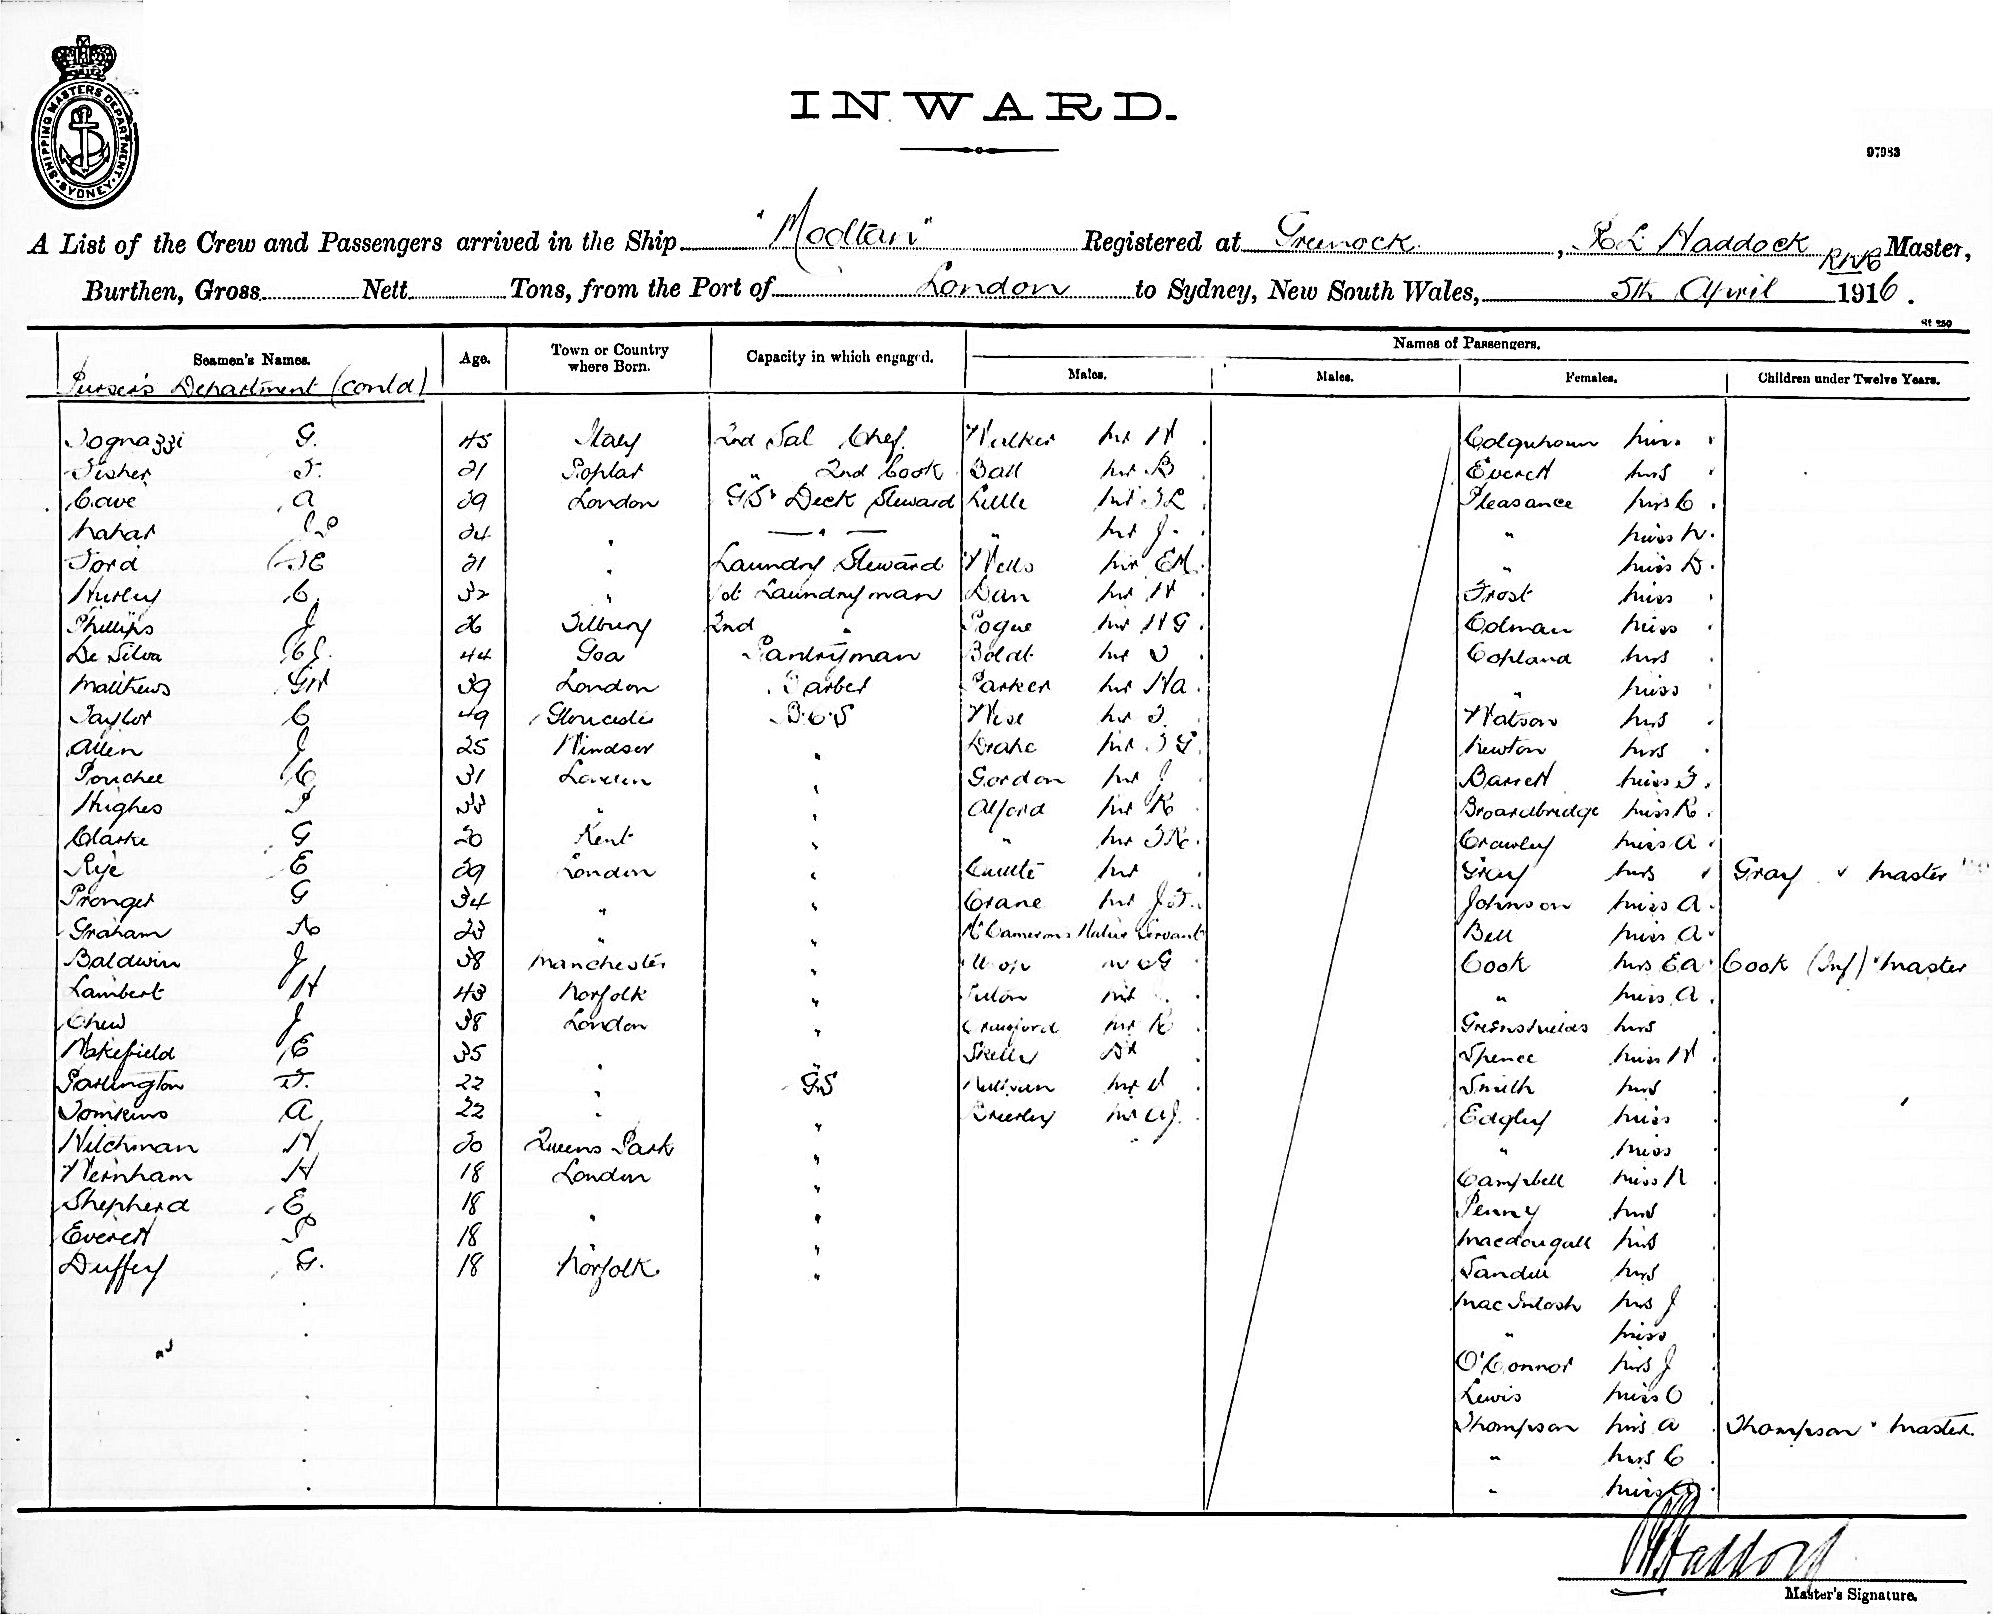 SHIPPING MASTERS DEPARTMENT. SYDNEY.
INWARD.
97983
A List of the Crew and Passengers arrived in the Ship "Mooltan" Registered at Greenock, Haddock RNR Master,
Burthen, Gross Nett Tons, from the Port of London to Sydney, New South Wales, 5th April 1916.
Seamen's Names. Age. Town or Country where Born. Capacity in which engaged. Names of Passengers.
Males. Males. Females. Children under Twelve Years.
Purser's Department (contd)
Tognazzi G. 45 Italy 2nd Sal Chef. Walker Mr H Colquhoun Mrs.
Fisher F. 21 Poplar " 2nd Cook Ball Mr B Everett Mrs
Cave A 29 London G.S. Deck Steward Mr Pleasance Mrs C
24 " — " — " Mr J. " Miss N.
Ford 21 " Laundry Steward Wells Mr EM. " Miss D.
Hurley C. 32 " 1st Laundryman Dan Mr H Frost Miss
Phillips J 26 Tilbury 2nd " Pogue Mr HG. Colman Miss
De Silva 44 Goa Pantryman Boldt Mr Copland Mrs
Matthews GH 39 London Barber Parker Mr Ha. " Miss
Taylor C 49 Gloucester B.C.S Mr Watson Mrs
Allen J 25 Windsor " Drake Mr Newton Mrs
Pouchee C 31 London " Gordon Mr J Barrett Miss
Hughes 33 " " Alford Mr R Broardbridge Miss R.
Clarke G 20 Kent " " Mr Crawley Miss A.
Rye E 29 London " Mr Gray Mrs Gray Master
Pronger G 34 " " Crane Mr Johnson Miss A.
Graham 23 " " Camerons Native Servant Bell Miss A
Baldwin J 38 Manchester " Cook Mrs E.A. Cook (Inf) Master
Lambert H 43 Norfolk " " Miss A.
Chew J 38 London " Mr R Greenshields Mrs
Wakefield E 35 " " Skelly Dr Spence Miss H
Partington F. 22 " G.S Mr Smith Mrs
Tomkins A 22 " " Mr Edgley Miss
Hitchman H 20 Queens Park " " Miss
Wernham H 18 London " Campbell Miss
Shepherd E 18 " " Penny Mrs
Everett P 18 " " Macdougall Mrs
Duffey G. 18 Norfolk. " Mrs
MacIntosh Mrs J
" Miss
O'Connor Mrs J
Lewis Miss
Thompson Mrs A Thompson Master.
" Mrs C
" Miss
Haddock
Master's Signature.